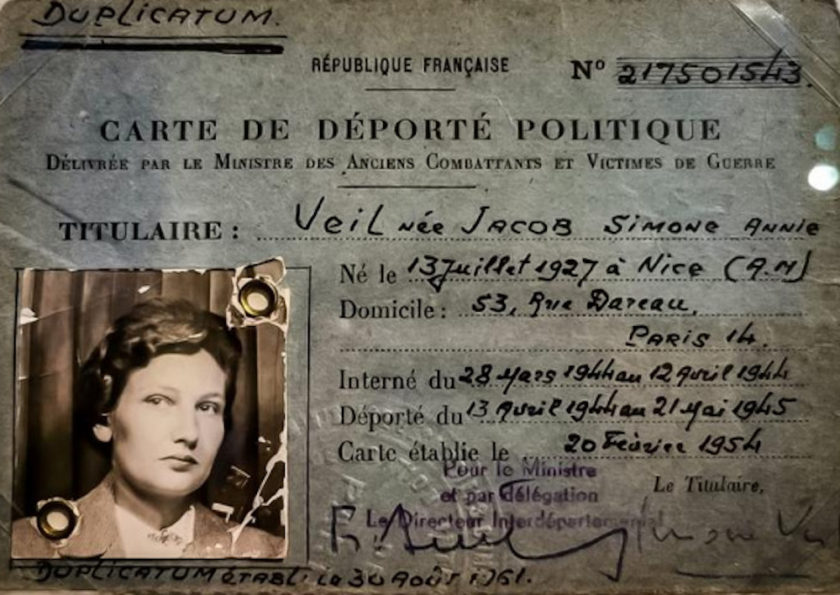 DUPLICATUM.
RÉPUBLIQUE FRANÇAISE
Nº 217501543
CARTE DE DÉPORTÉ POLITIQUE
DÉLIVRÉE PAR LE MINISTRE DES ANCIENS COMBATTANTS ET VICTIMES DE GUERRE
TITULAIRE : Veil née JACOB SIMONE ANNIE
Né le 13 Juillet 1927 à Nice (A.M)
Domicile : 53, Rue Dareau,
PARIS 14.
Interné du 28 Mars 1944 au 12 Avril 1944
Déporté du 13 Avril 1944 au 21 Mai 1945
Carte établie le 20 Février 1954
Pour le Ministre
et par délégation
Le Titulaire,
Le Directeur Interdépartemental
DUPLICATUM établi le 30 Août 1961.